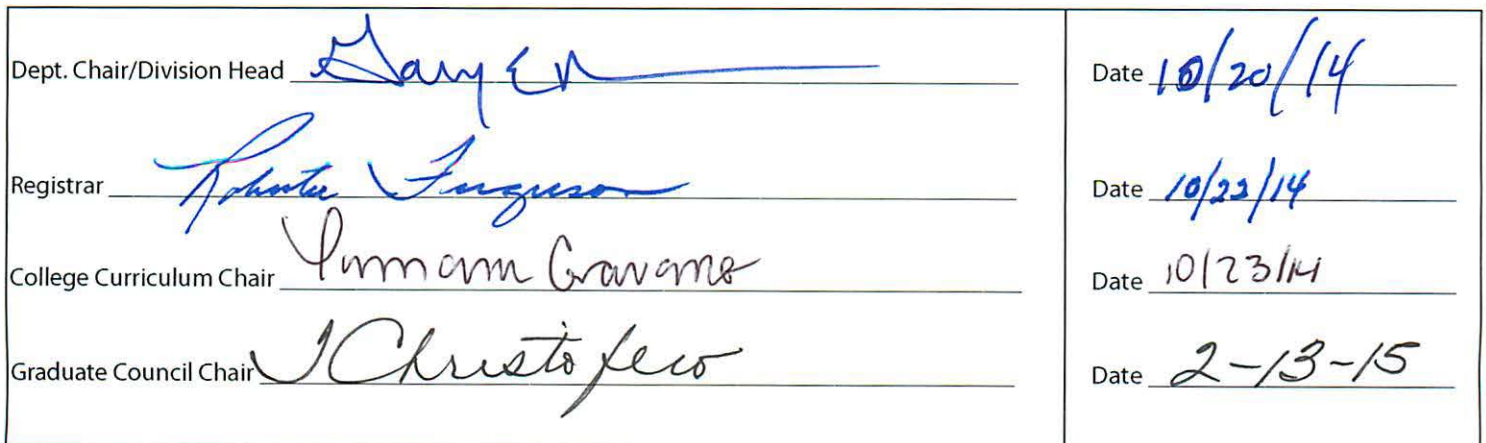 Dept. Chair/Division Head Gary Date 10/20/14
Registrar Ferguson Date 10/22/14
College Curriculum Chair Date 10/23/14
Graduate Council Chair Christofeco Date 2-13-15